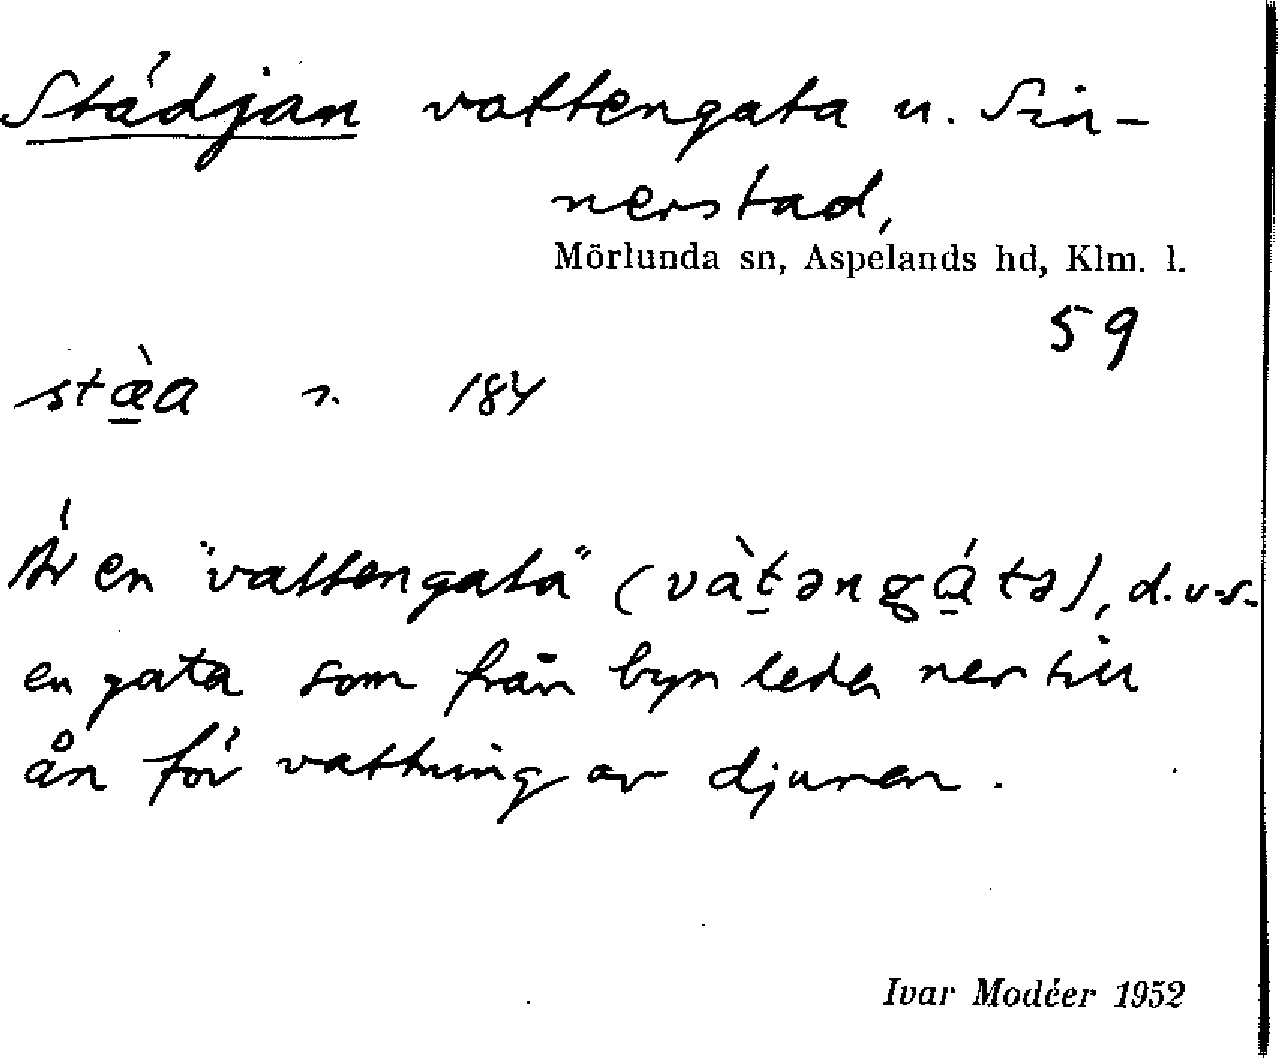 Städjan vattengata u. Sin-
nerstad,
Mörlunda sn, Aspelands hd, Klm. l.
59
stæ̀a n. 184
Är en "vattengata" (vàtəngátə), d.v.s.
en gata som från byn leder ner till
ån för vattning av djuren.
Ivar Modéer 1952